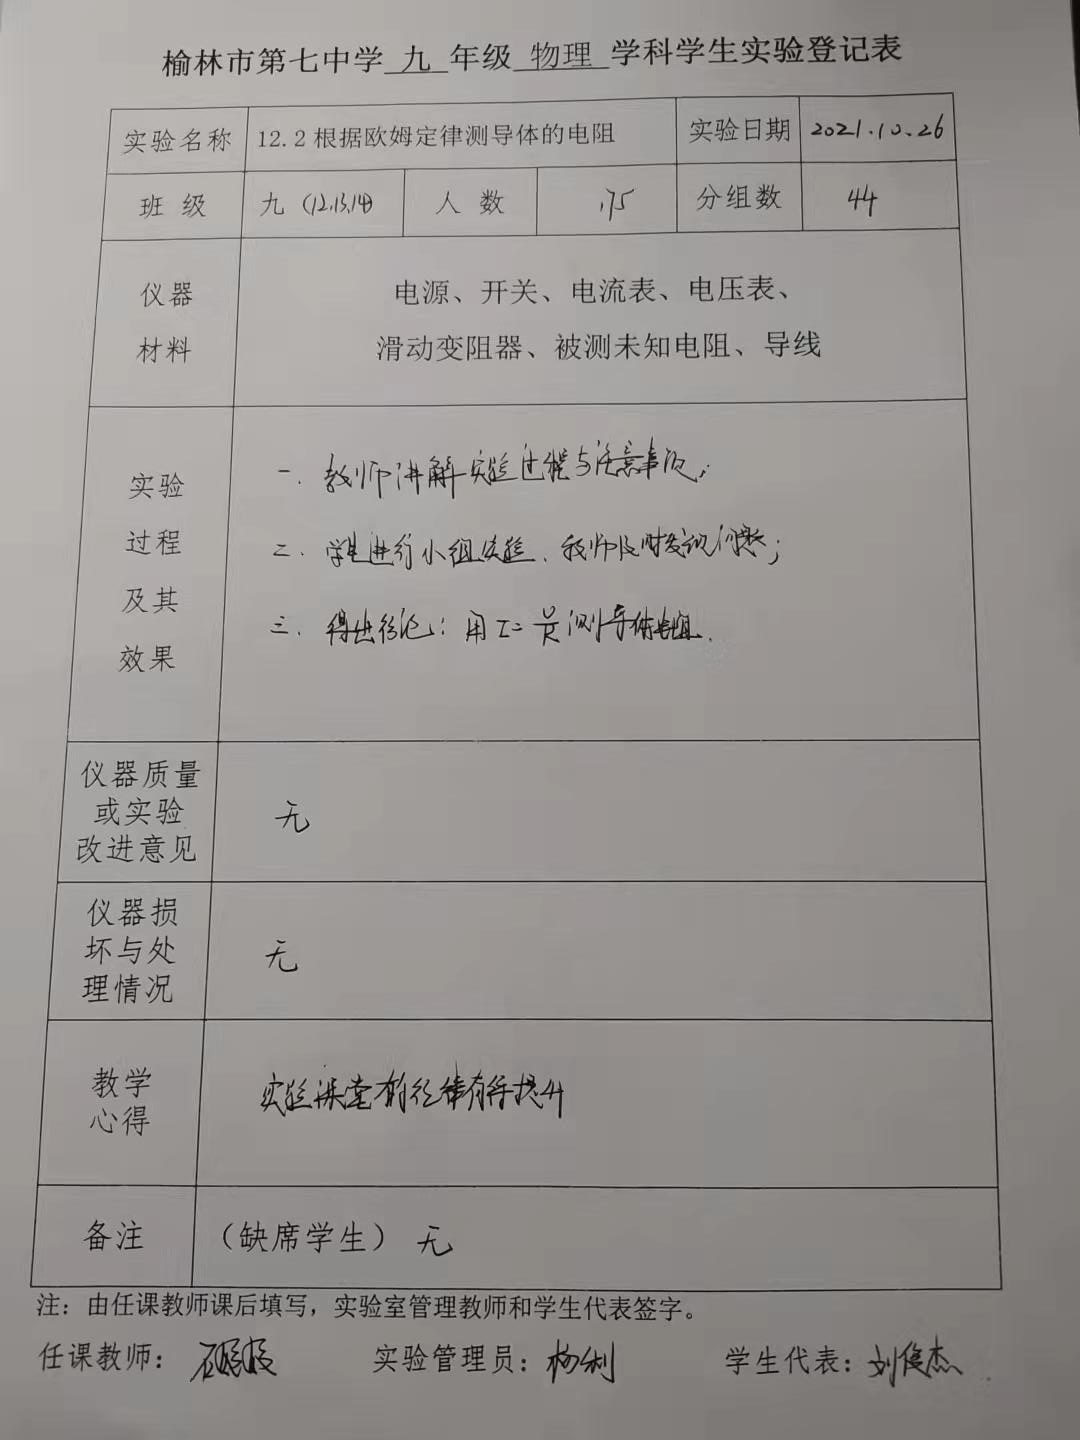 榆林市第七中学 九 年级 物理 学科学生实验登记表
实验名称 12.2根据欧姆定律测导体的电阻 实验日期 2021.10.26
班 级 九（12,13,14） 人 数 175 分组数 44
仪器
材料
电源、开关、电流表、电压表、
滑动变阻器、被测未知电阻、导线
实验
过程
及其
效果
一、教师讲解实验过程与注意事项；
二、学生进行小组实验、教师及时发现问题；
三、得出结论：用I=U/R测导体电阻.
仪器质量
或实验
改进意见
无
仪器损
坏与处
理情况
无
教学
心得
实验课堂 有待提升
备注 （缺席学生） 无
注：由任课教师课后填写，实验室管理教师和学生代表签字。
任课教师： 实验管理员：杨利 学生代表：刘俊杰